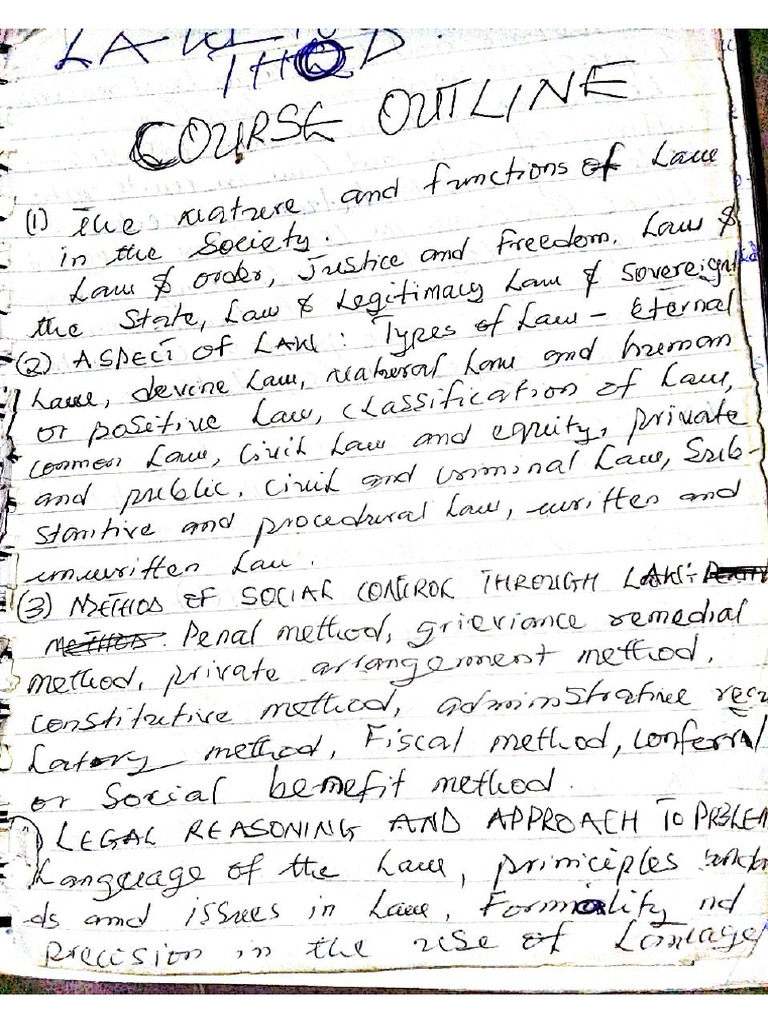 COURSE OUTLINE
(1) The Nature and functions of Law
in the Society.
Law & order, Justice and Freedom. Law &
the State, Law & Legitimacy Law & Sovereign
(2) ASPECT OF LAW: Types of Law - Eternal
Law, devine Law, natural Law and human
or positive Law, classification of Law,
common Law, Civil Law and equity, private
and public, Civil and criminal Law, Sub-
stantive and procedural Law, written and
unwritten Law.
(3) METHOD OF SOCIAL CONTROL THROUGH LAW:
Penal method, grieviance remedial
method, private arrangement method,
constitutive method, administrative regu
latory method, Fiscal method, conferral
or Social benefit method.
LEGAL REASONING AND APPROACH TO PROBLEM
Language of the Law, priniciples
ds and issues in Law, Formality nd
precision in the use of